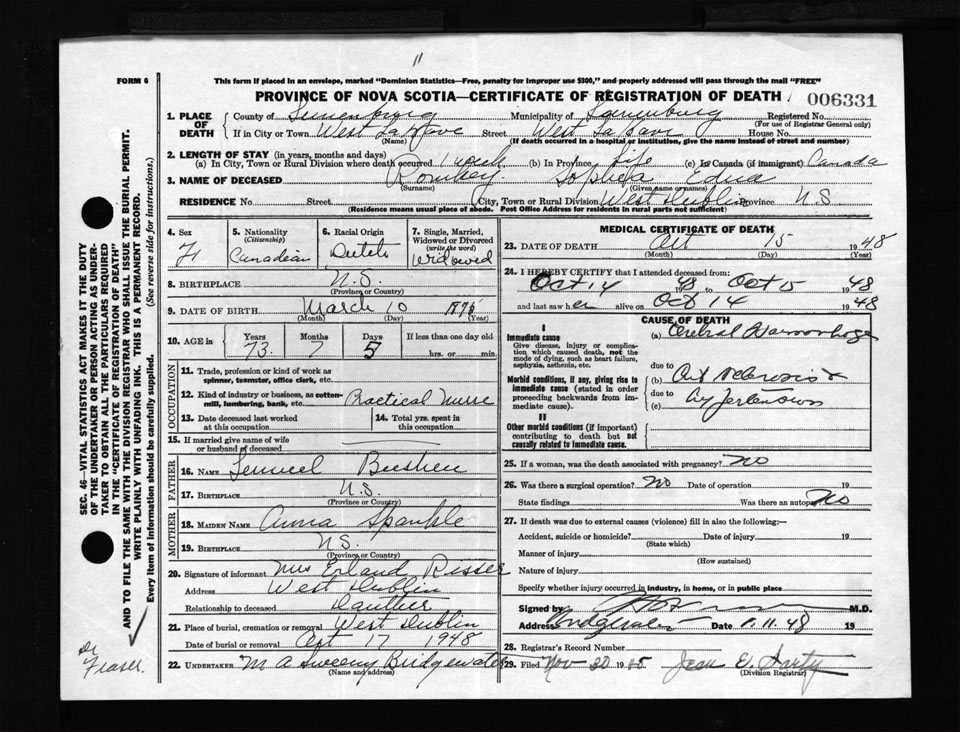 FORM 6
This form if placed in an envelope, marked "Dominion Statistics—Free, penalty for improper use $300," and properly addressed will pass through the mail "FREE"
PROVINCE OF NOVA SCOTIA—CERTIFICATE OF REGISTRATION OF DEATH
006331
1. PLACE OF DEATH
County of Lunenburg Municipality of Lunenburg Registered No.
(For use of Registrar General only)
If in City or Town West LaHave Street West LaHave House No.
(Name) (If death occurred in a hospital or institution, give the name instead of street and number)
2. LENGTH OF STAY (in years, months and days)
(a) In City, Town or Rural Division where death occurred 1 week (b) In Province life (c) In Canada (if immigrant) Canada
3. NAME OF DECEASED Romkey Sophia Edna
(Surname) (Given name or names)
RESIDENCE No. Street City, Town or Rural Division West Dublin Province N.S.
(Residence means usual place of abode. Post Office Address for residents in rural parts not sufficient)
4. Sex F
5. Nationality (Citizenship) Canadian
6. Racial Origin Dutch
7. Single, Married, Widowed or Divorced (write the word) Widowed
8. BIRTHPLACE N.S.
(Province or Country)
9. DATE OF BIRTH March 10 1875
(Month) (Day) (Year)
10. AGE in Years Months Days If less than one day old
73 7 5 hrs. or min.
OCCUPATION
11. Trade, profession or kind of work as spinner, teamster, office clerk, etc.
12. Kind of industry or business, as cotton-mill, lumbering, bank, etc. Practical Nurse
13. Date deceased last worked at this occupation
14. Total yrs. spent in this occupation
15. If married give name of wife or husband of deceased
FATHER
16. NAME Lemuel
17. BIRTHPLACE N.S.
(Province or Country)
MOTHER
18. MAIDEN NAME Anna Spankle
19. BIRTHPLACE N.S.
(Province or Country)
20. Signature of informant Mrs Erland Risser
Address West Dublin
Relationship to deceased Dauther
21. Place of burial, cremation or removal West Dublin
Date of burial or removal Oct 17 1948
22. UNDERTAKER M A Sweeny Bridgewater
(Name and address)
MEDICAL CERTIFICATE OF DEATH
23. DATE OF DEATH Oct 15 1948
(Month) (Day) (Year)
24. I HEREBY CERTIFY that I attended deceased from:
Oct 14 1948 to Oct 15 1948
and last saw her alive on Oct 14 1948
CAUSE OF DEATH
I
Immediate cause
Give disease, injury or complication which caused death, not the mode of dying, such as heart failure, asphyxia, asthenia, etc.
(a) Cerebral Haemorrhage
due to
Morbid conditions, if any, giving rise to immediate cause (stated in order proceeding backwards from immediate cause).
(b) Art Sclerosis &
due to
(c) Hypertension
II
Other morbid conditions (if important) contributing to death but not causally related to immediate cause.
25. If a woman, was the death associated with pregnancy? No
26. Was there a surgical operation? No Date of operation 19
State findings Was there an autopsy? No
27. If death was due to external causes (violence) fill in also the following:—
Accident, suicide or homicide? Date of injury 19
(State which)
Manner of injury
(How sustained)
Nature of injury
Specify whether injury occurred in industry, in home, or in public place
Signed by M.D.
Address Date 1.11.48 19
28. Registrar's Record Number
29. Filed Nov 30 19 Jean E. Harty
(Division Registrar)
SEC. 46—VITAL STATISTICS ACT MAKES IT THE DUTY
OF THE UNDERTAKER OR PERSON ACTING AS UNDERTAKER TO OBTAIN ALL THE PARTICULARS REQUIRED
IN THE "CERTIFICATE OF REGISTRATION OF DEATH"
AND TO FILE THE SAME WITH THE DIVISION REGISTRAR WHO SHALL ISSUE THE BURIAL PERMIT.
WRITE PLAINLY WITH UNFADING INK. THIS IS A PERMANENT RECORD.
Every item of information should be carefully supplied. (See reverse side for instructions.)
Dr Fraser.